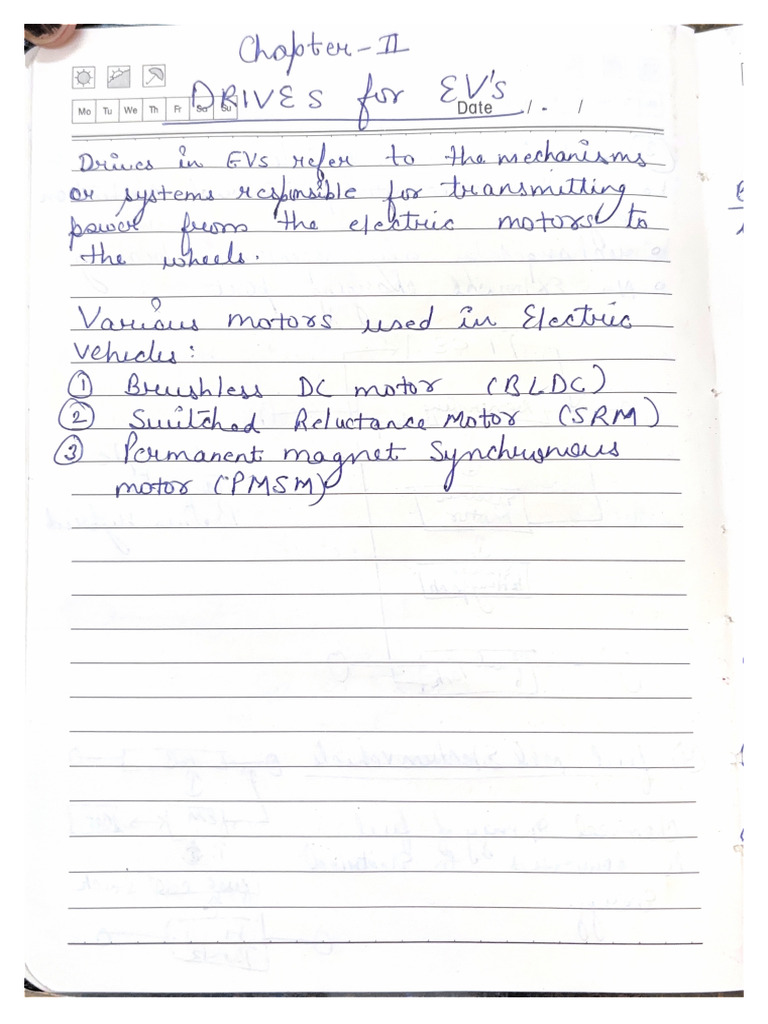 Chapter-II
DRIVES for EV's
Mo Tu We Th Fr Sa Su
Date / . /
Drives in EVs refer to the mechanisms
or systems responsible for transmitting
power from the electric motors to
the wheels.
Various motors used in Electric
vehicles:
① Brushless DC motor (BLDC)
② Switched Reluctance Motor (SRM)
③ Permanent magnet Synchronous
motor (PMSM)